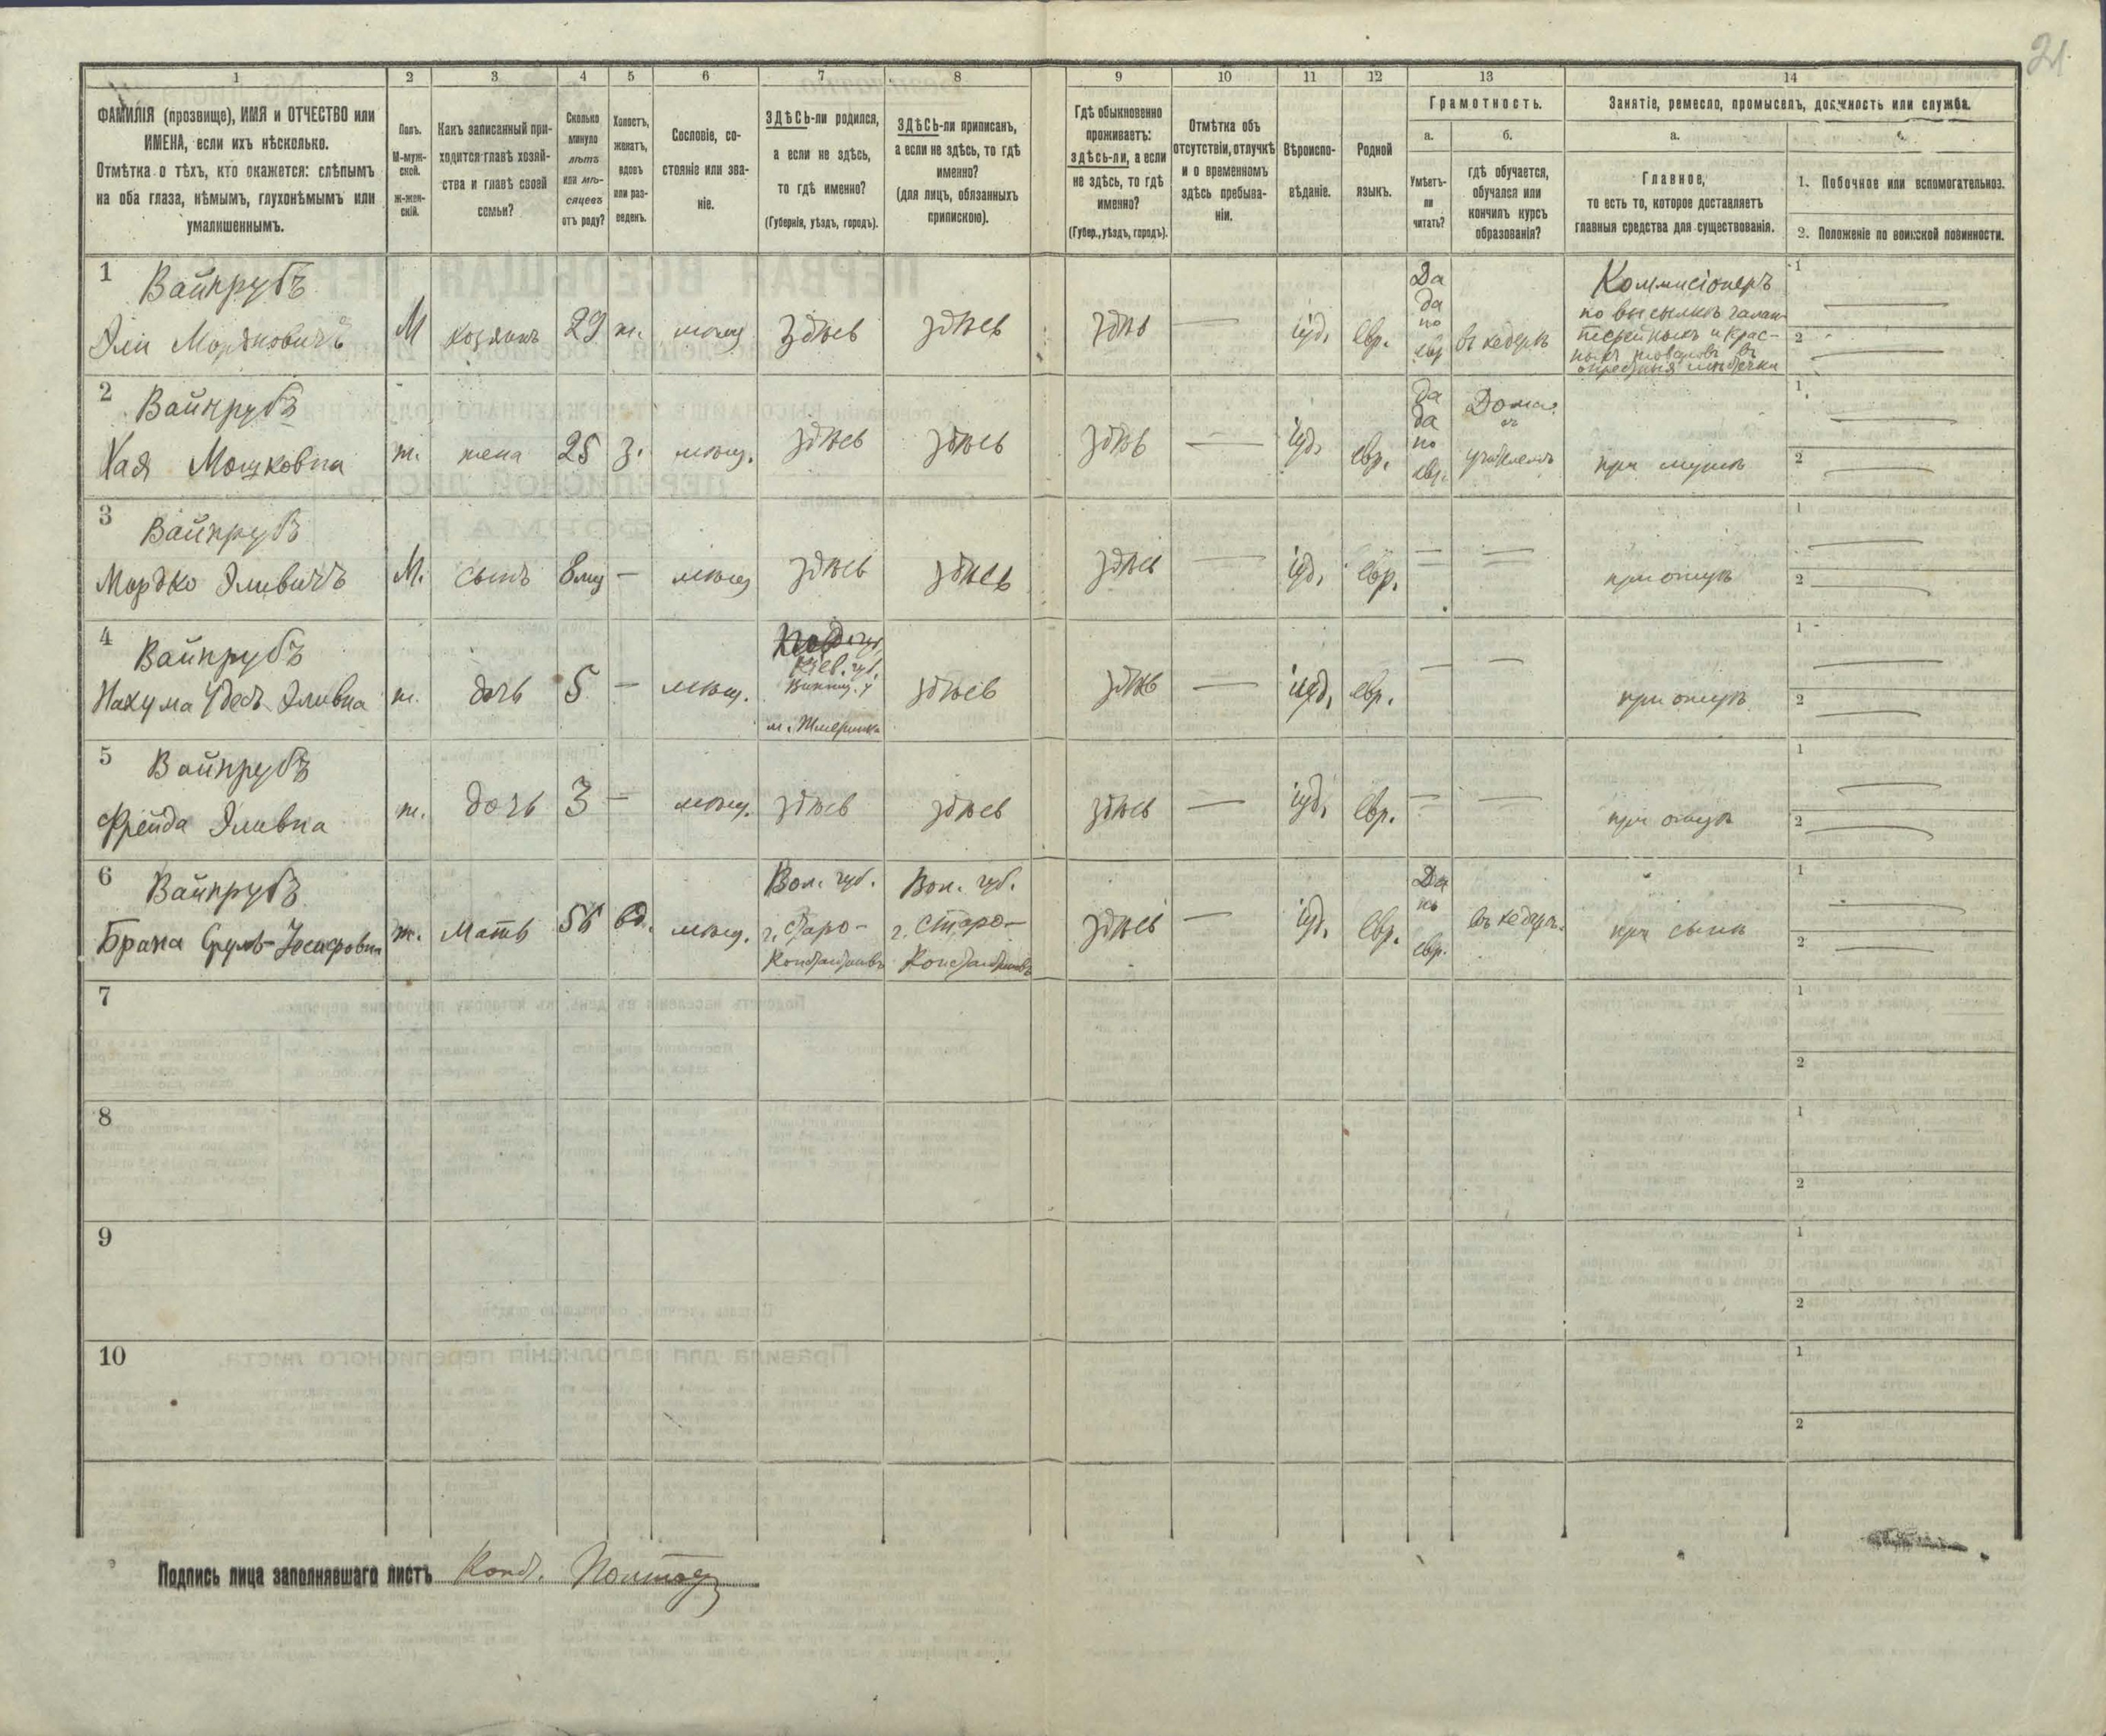 21
1 2 3 4 5 6 7 8 9 10 11 12 13 14
ФАМИЛІЯ (прозвище), ИМЯ и ОТЧЕСТВО или
ИМЕНА, если ихъ нѣсколько.
Отмѣтка о тѣхъ, кто окажется: слѣпымъ
на оба глаза, нѣмымъ, глухонѣмымъ или
умалишеннымъ.
Полъ.
М-муж-
ской.
Ж-жен-
скій.
Какъ записанный при-
ходится главѣ хозяй-
ства и главѣ своей
семьи?
Сколько
минуло
лѣтъ
или мѣ-
сяцевъ
отъ роду?
Холостъ,
женатъ,
вдовъ
или раз-
веденъ.
Сословіе, со-
стояніе или зва-
ніе.
ЗДѢСЬ-ли родился,
а если не здѣсь,
то гдѣ именно?
(Губернія, уѣздъ, городъ).
ЗДѢСЬ-ли приписанъ,
а если не здѣсь, то гдѣ
именно?
(для лицъ, обязанныхъ
припискою).
Гдѣ обыкновенно
проживаетъ:
здѣсь-ли, а если
не здѣсь, то гдѣ
именно?
(Губер., уѣздъ, городъ).
Отмѣтка объ
отсутствіи, отлучкѣ
и о временномъ
здѣсь пребыва-
ніи.
Вѣроиспо-
вѣданіе.
Родной
языкъ.
Грамотность.
а.
Умѣетъ-
ли
читать?
б.
гдѣ обучается,
обучался или
кончилъ курсъ
образованія?
Занятіе, ремесло, промыселъ, должность или служба.
а.
Главное,
то есть то, которое доставляетъ
главныя средства для существованія.
1. Побочное или вспомогательное.
2. Положеніе по воинской повинности.
1
Вайнрубъ
Эли
М
хозяинъ
29
ж.
мѣщ
здѣсь
здѣсь
здѣсь
—
іуд.
евр.
Да
да
по
евр
въ хедерѣ
Коммисіонеръ
по высылкѣ галан-
терейныхъ и крас-
ныхъ товаровъ въ
1 —
2 —
2
Вайнрубъ
Хая Мошковна
ж.
жена
25
з.
мѣщ.
здѣсь
здѣсь
здѣсь
—
іуд.
евр.
да
да
по
евр.
Дома
при мужѣ
1 —
2 —
3
Вайнрубъ
Мордко Эливичъ
М.
сынъ
8 мѣс
—
мѣщ
здѣсь
здѣсь
здѣсь
—
іуд.
евр.
—
—
при отцѣ
1 —
2 —
4
Вайнрубъ
Нахума Удесъ Эливна
ж.
дочь
5
—
мѣщ.
Кіев. губ.
м. Жмеринка
здѣсь
здѣсь
—
іуд.
евр.
—
—
при отцѣ
1 —
2 —
5
Вайнрубъ
Фрейда Эливна
ж.
дочь
3
—
мѣщ.
здѣсь
здѣсь
здѣсь
—
іуд.
евр.
—
—
при отцѣ
1 —
2 —
6
Вайнрубъ
Брана Сруль-Іосифовна
ж.
Мать
56
вд.
мѣщ.
Вол. губ.
г. Старо-
Константиновъ
Вол. губ.
г. Старо-
Константиновъ
здѣсь
—
іуд.
евр.
Да
по
евр.
въ хедерѣ.
при сынѣ
1 —
2 —
7
1
2
8
1
2
9
1
2
10
1
2
Подпись лица заполнявшаго листъ